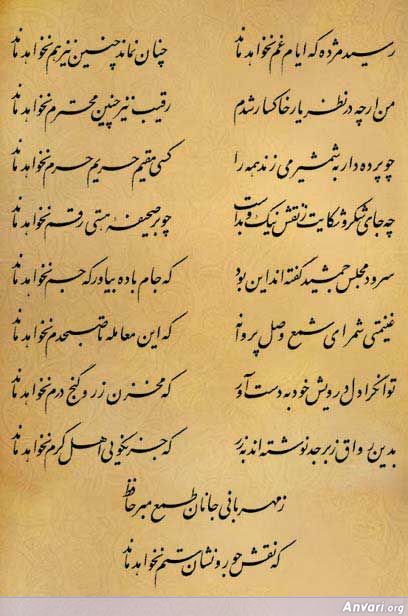 رسید مژده که ایام غم نخواهد ماند چنان نماند چنین نیز هم نخواهد ماند
من ار چه در نظر یار خاکسار شدم رقیب نیز چنین محترم نخواهد ماند
چو پرده دار به شمشیر می زند همه را کسی مقیم حریم حرم نخواهد ماند
چه جای شکر و شکایت ز نقش نیک و بد است چو بر صحیفه هستی رقم نخواهد ماند
سرود مجلس جمشید گفته اند این بود که جام باده بیاور که جم نخواهد ماند
غنیمتی شمر ای شمع وصل پروانه که این معامله تا صبحدم نخواهد ماند
توانگرا دل درویش خود به دست آور که مخزن زر و گنج درم نخواهد ماند
بدین رواق زبرجد نوشته اند به زر که جز نکویی اهل کرم نخواهد ماند
ز مهربانی جانان طمع مبر حافظ
که نقش جور و نشان ستم نخواهد ماند
Anvari.org